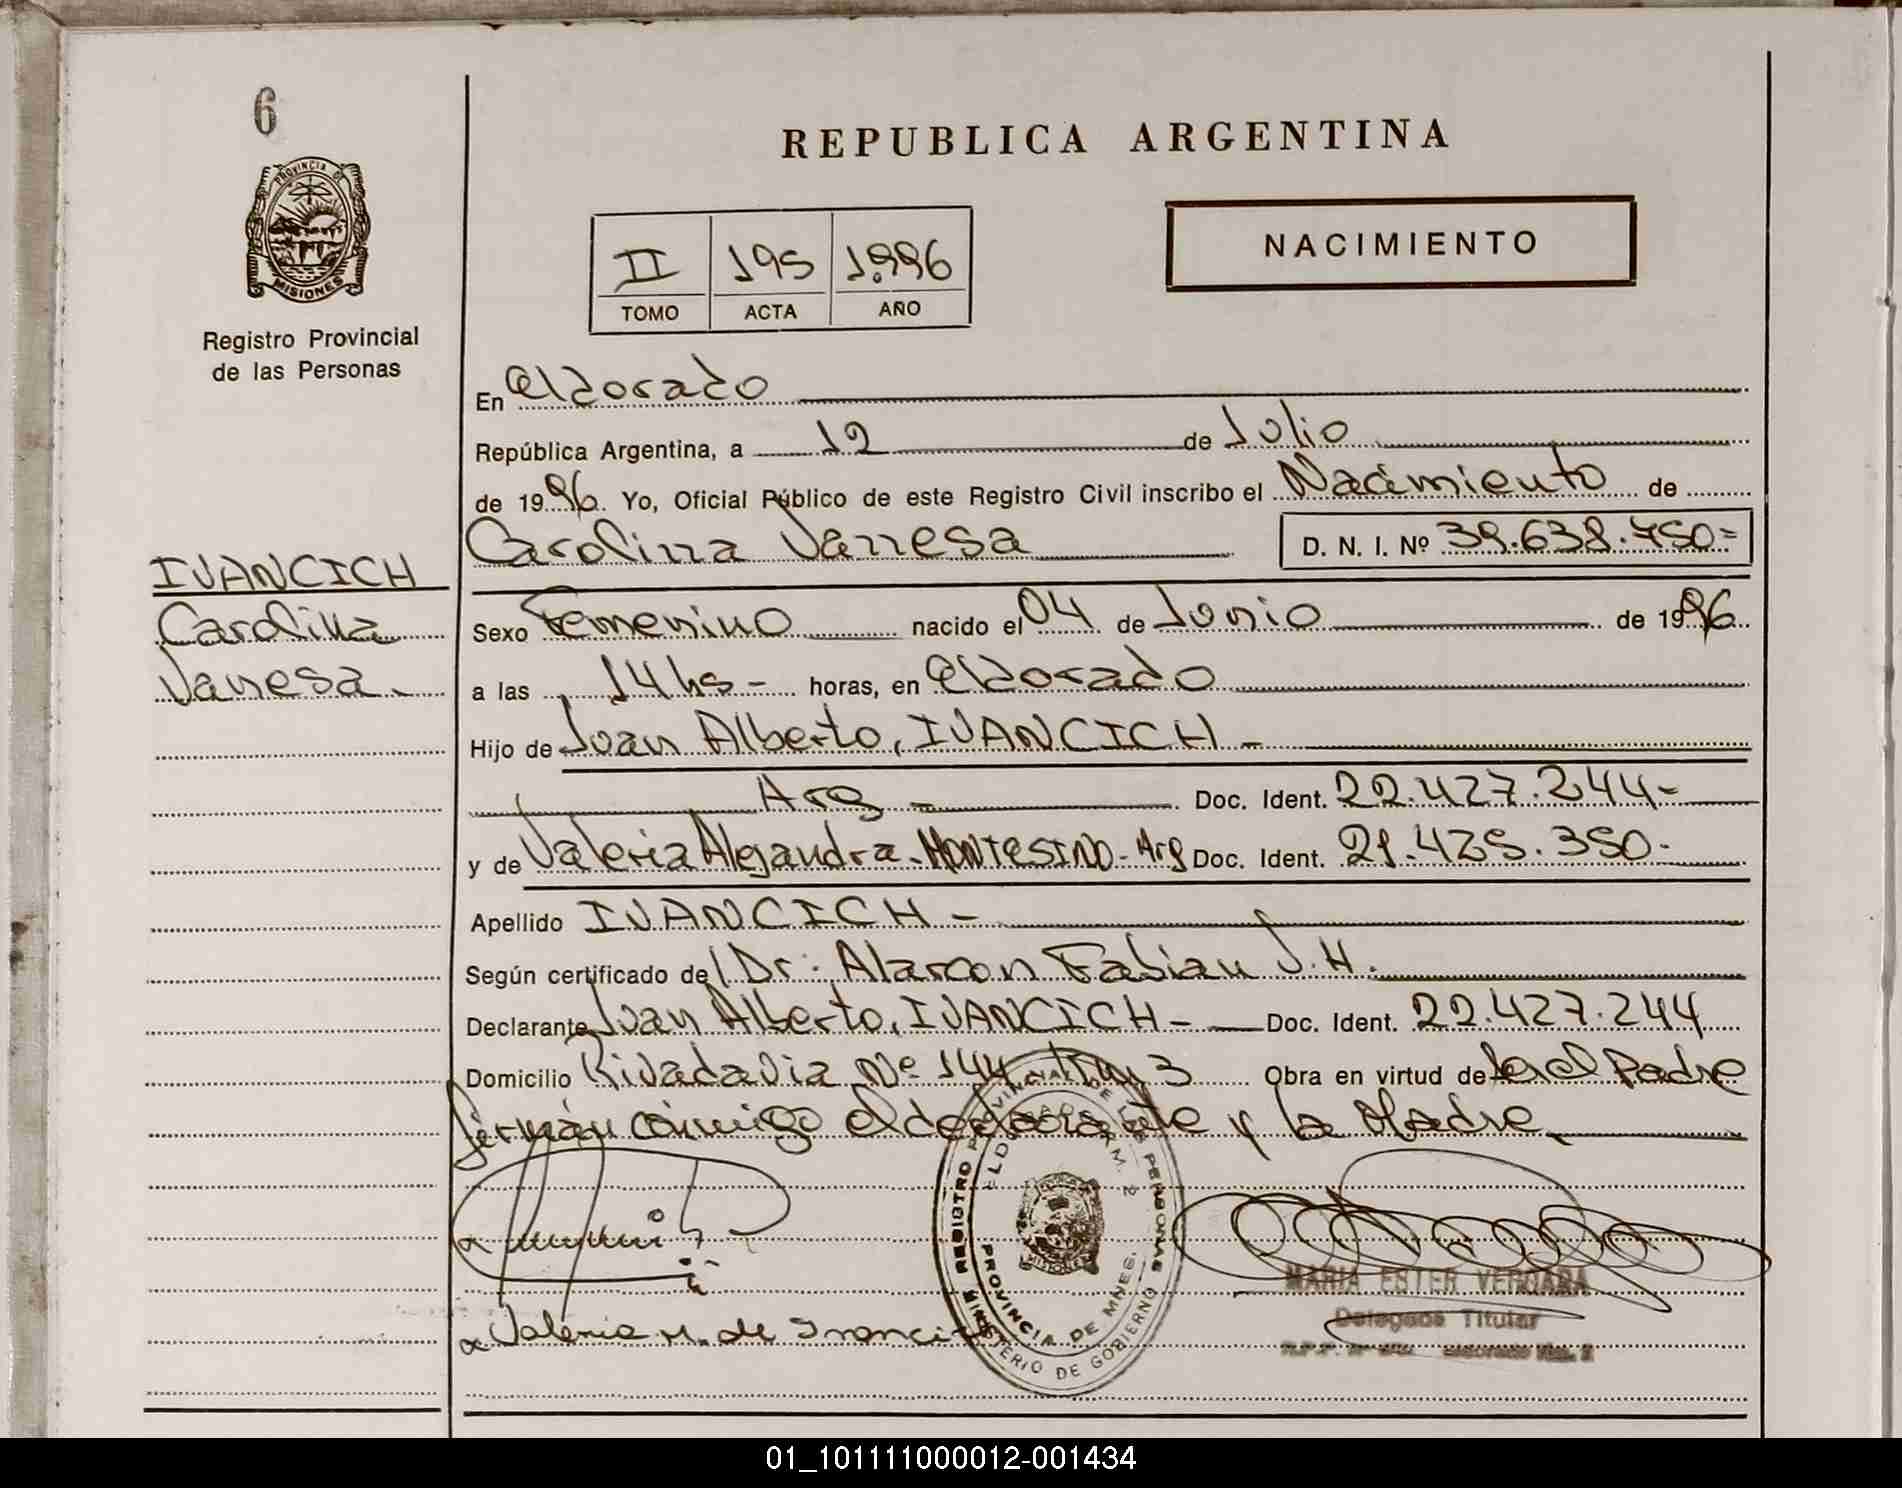 6
PROVINCIA DE
MISIONES
Registro Provincial
de las Personas
REPUBLICA ARGENTINA
II 195 1.996
TOMO ACTA AÑO
NACIMIENTO
En Eldorado
República Argentina, a 12 de Julio
de 1996. Yo, Oficial Público de este Registro Civil inscribo el Nacimiento de
Carolina Vanesa D. N. I. Nº 39.638.750=
IVANCICH
Carolina
Vanesa.-
Sexo Femenino nacido el 04 de Junio de 1996
a las 14 hs- horas, en Eldorado
Hijo de Juan Alberto, IVANCICH -
Arg - Doc. Ident. 22.427.244-
y de Valeria Alejandra - MONTESINO - Arg Doc. Ident. 21.425.350-
Apellido IVANCICH -
Según certificado de Dr: Alarcon Fabian J.H.
Declarante Juan Alberto, IVANCICH - Doc. Ident. 22.427.244
Domicilio Rivadavia Nº 144 Km 3 Obra en virtud de Ser el Padre
firman conmigo el declarante y la Madre.
REGISTRO PROVINCIAL DE LAS PERSONAS
ELDORADO KM. 2
MISIONES
PROVINCIA DE MNES.
MINISTERIO DE GOBIERNO
MARIA ESTER VERGARA
Delegado Titular
Valeria M. de Ivancich
01_101111000012-001434